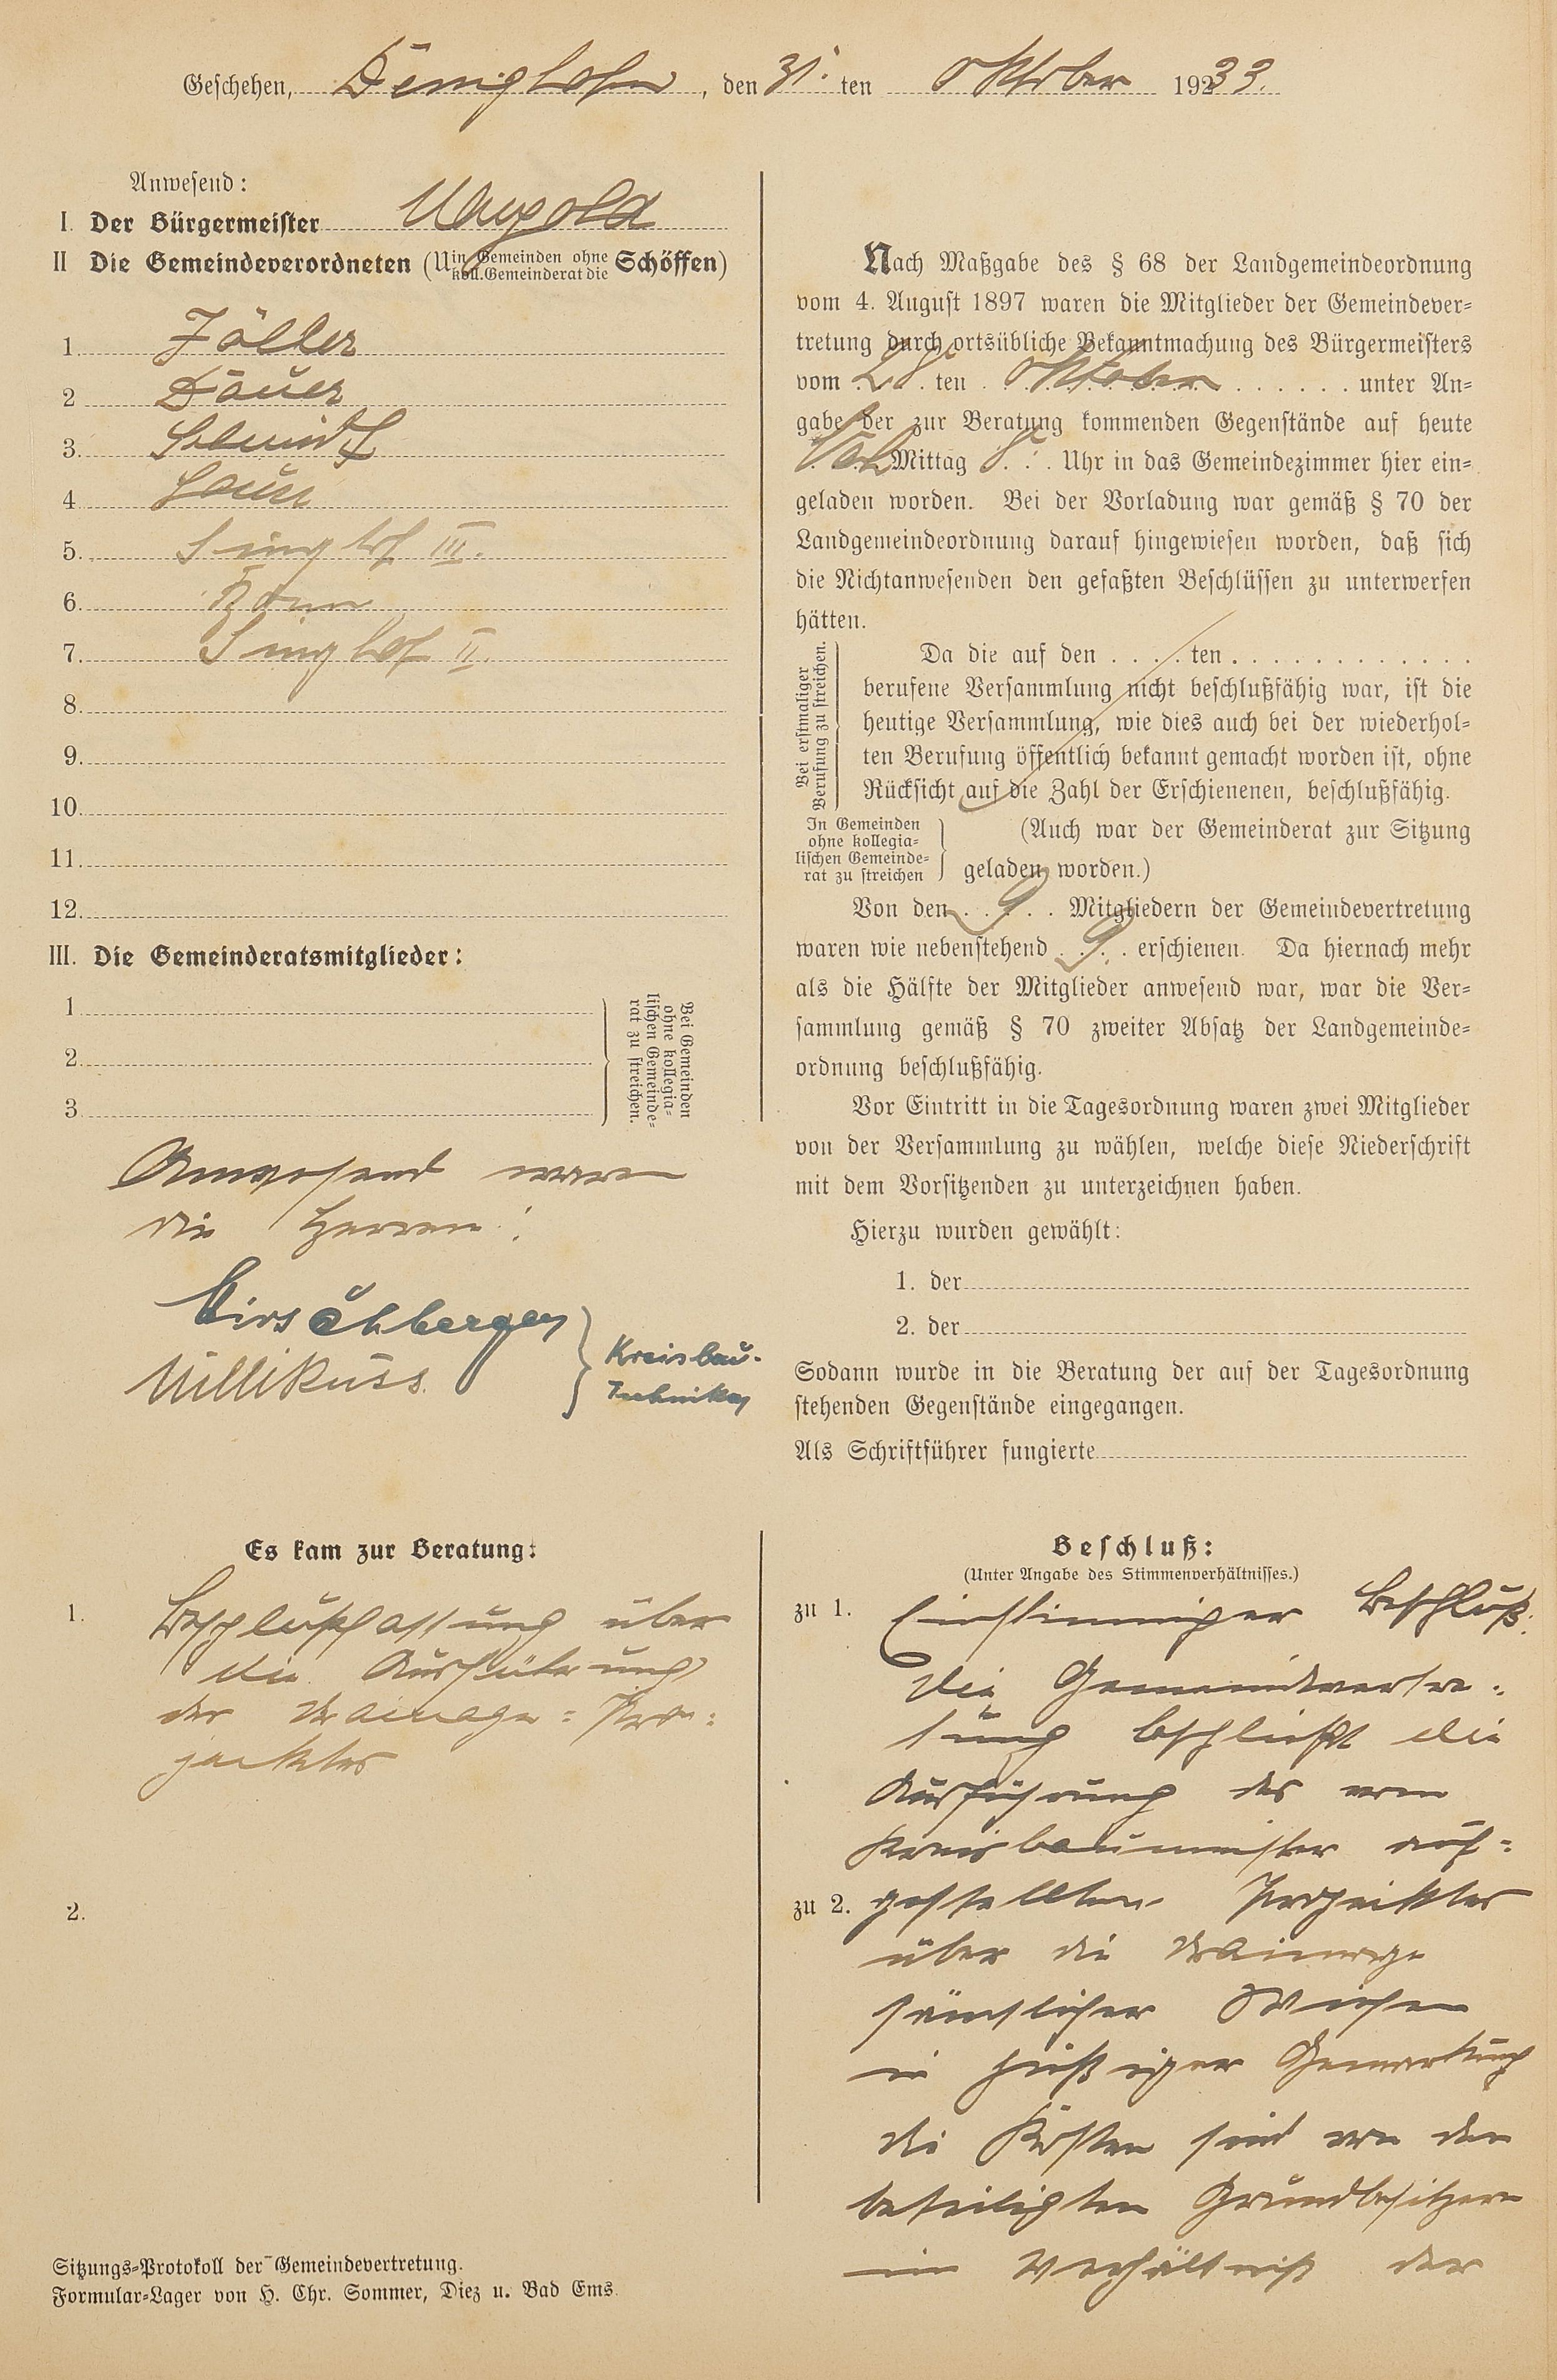 Geschehen, Dienighofen, den 31. ten Oktober 1933.
Anwesend:
I. Der Bürgermeister
II Die Gemeindeverordneten (U in Gemeinden ohne koll. Gemeinderat die Schöffen)
1. Zöller
2 Dauer
3. Schmidt
4
5. Singhof III.
6.
7. Singhof II.
8.
9.
10.
11.
12.
III. Die Gemeinderatsmitglieder:
1
2.
3.
Bei Gemeinden
ohne kollegia-
lischen Gemeinde-
rat zu streichen.
Anwesend waren
die Herren:
Hirschberger
Kreisbau-
Techniker
Nach Maßgabe des § 68 der Landgemeindeordnung
vom 4. August 1897 waren die Mitglieder der Gemeindever-
tretung durch ortsübliche Bekanntmachung des Bürgermeisters
vom 28. ten Oktober unter An-
gabe der zur Beratung kommenden Gegenstände auf heute
Mittag 8 Uhr in das Gemeindezimmer hier ein-
geladen worden. Bei der Vorladung war gemäß § 70 der
Landgemeindeordnung darauf hingewiesen worden, daß sich
die Nichtanwesenden den gefaßten Beschlüssen zu unterwerfen
hätten.
Bei erstmaliger
Berufung zu streichen.
Da die auf den . . . . ten . . . . . . . . . . . .
berufene Versammlung nicht beschlußfähig war, ist die
heutige Versammlung, wie dies auch bei der wiederhol-
ten Berufung öffentlich bekannt gemacht worden ist, ohne
Rücksicht auf die Zahl der Erschienenen, beschlußfähig.
In Gemeinden
ohne kollegia-
lischen Gemeinde-
rat zu streichen
(Auch war der Gemeinderat zur Sitzung
geladen worden.)
Von den 9 Mitgliedern der Gemeindevertretung
waren wie nebenstehend 9 erschienen. Da hiernach mehr
als die Hälfte der Mitglieder anwesend war, war die Ver-
sammlung gemäß § 70 zweiter Absatz der Landgemeinde-
ordnung beschlußfähig.
Vor Eintritt in die Tagesordnung waren zwei Mitglieder
von der Versammlung zu wählen, welche diese Niederschrift
mit dem Vorsitzenden zu unterzeichnen haben.
Hierzu wurden gewählt:
1. der
2. der
Sodann wurde in die Beratung der auf der Tagesordnung
stehenden Gegenstände eingegangen.
Als Schriftführer fungierte
Es kam zur Beratung:
1. Beschlußfassung über
die Ausführung
des Drainage-Pro-
jecktes
2.
Beschluß:
(Unter Angabe des Stimmenverhältnisses.)
zu 1. Einstimmiger Beschluß.
Die Gemeindevertre-
tung beschließt die
Ausführung des vom
Kreisbaumeister auf-
zu 2. gestellten Projecktes
über die Drainage
sämtlicher Wiesen
in hießiger Gemarkung
die Kosten sind von den
beteiligten Grundbesitzern
im Verhältniß der
Sitzungs-Protokoll der Gemeindevertretung.
Formular-Lager von H. Chr. Sommer, Diez u. Bad Ems.